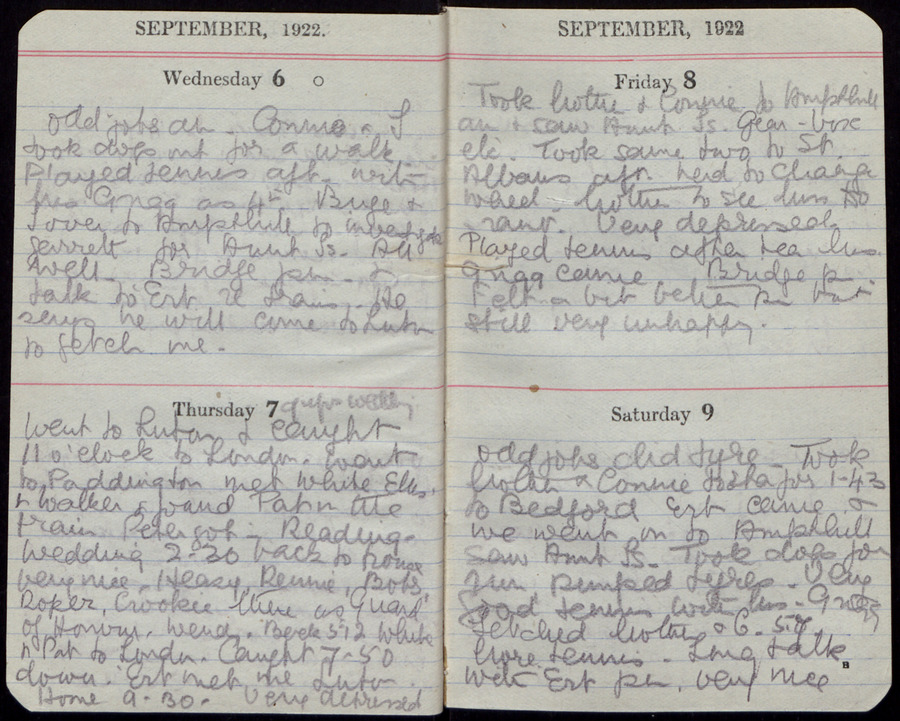 SEPTEMBER, 1922.
Wednesday 6
odd jobs am. Connie & I
took dogs out for a walk
Played tennis aft. with
Mrs Gregg as 4th. Buge &
I over to Ampthill to investigate
for Aunt Is. All
well. Bridge pm. &
talk to Ert re trains. He
says he will come to Luton
to fetch me.
Thursday 7
Went to Luton & caught
11 o'clock to London. Went
to Paddington met White Ellis,
& Walker & found Pat in the
train Peter got in Reading.
Wedding 2-30 back to house
very nice. Heasy, Rennie, Bobs,
Roper, Crookie there as Guard
of Honour. Went. Back 5-12 White
& Pat to London. Caught 7-50
down. Ert met me Luton.
Home 9-30. Very depressed
SEPTEMBER, 1922
Friday 8
Took Mother & Connie to Ampthill
am & saw Aunt Is. Gear-box
etc. Took same two to St.
Albans aft. had to change
wheel. Mother to see
Very depressed.
Played tennis after tea Mrs.
Gregg came Bridge pm
Felt a bit better pm but
still very unhappy.
Saturday 9
odd jobs and tyre. Took
Mother & Connie for 1-43
to Bedford Ert came &
we went on to Ampthill
saw Aunt Is. Took dogs for
run pumped tyres. Very
good tennis with Mrs. Gregg
Fetched Mother & C.
More tennis. Long talk
with Ert pm. very nice